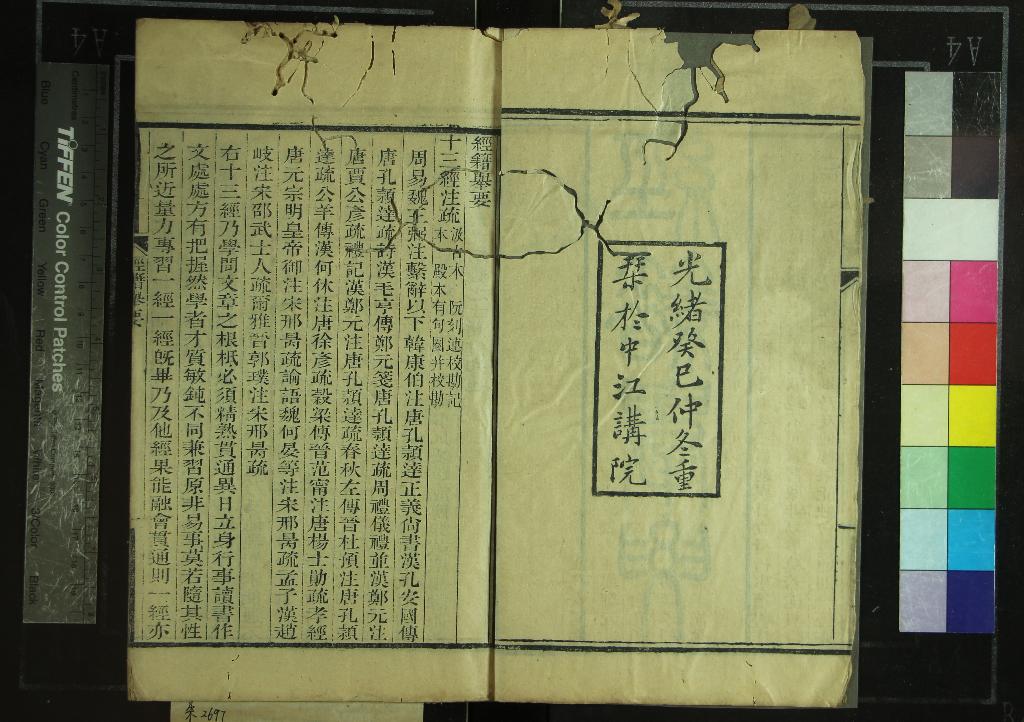 光緒癸巳仲冬重
栞於中江講院
經籍舉要
十三經注疏 汲古本 阮刻連校勘記
本 殿本有句圈并校勘
周易魏王弼注繫辭以下韓康伯注唐孔穎達正義尙書漢孔安國傳
唐孔穎達疏詩漢毛亨傳鄭元箋唐孔穎達疏周禮儀禮並漢鄭元注
唐賈公彥疏禮記漢鄭元注唐孔穎達疏春秋左傳晉杜預注唐孔穎
達疏公羊傳漢何休注唐徐彥疏穀梁傳晉范甯注唐楊士勛疏孝經
唐元宗明皇帝御注宋邢昺疏論語魏何晏等注宋邢昺疏孟子漢趙
岐注宋邵武士人疏爾雅晉郭璞注宋邢昺疏
右十三經乃學問文章之根柢必須精熟貫通異日立身行事讀書作
文處處方有把握然學者才質敏鈍不同兼習原非易事莫若隨其性
之所近量力專習一經一經旣畢乃及他經果能融會貫通則一經亦
經籍舉要
TIFFEN Color Control Patches
Centimetres
Blue
Cyan
Green
Yellow
Red
Magenta
White
3/Color
Black
A4
A4
朱2697